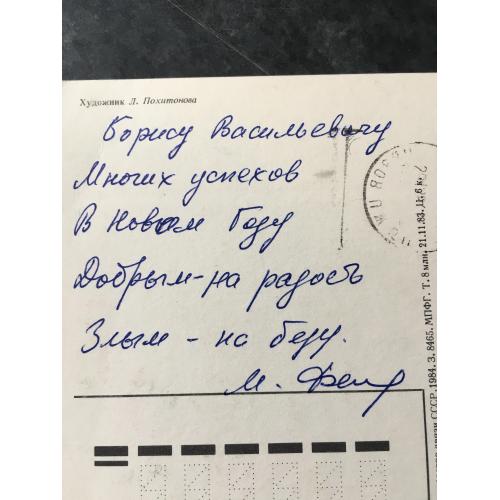 Художник Л. Похитонова
Борису Васильевичу
Многих успехов
В Новом Году
Добрым - на радость
Злым - на беду.
М.
связи СССР. 1984. З. 8465. МПФГ. Т. 8 млн. 21.11.83. Ц. 6 к.